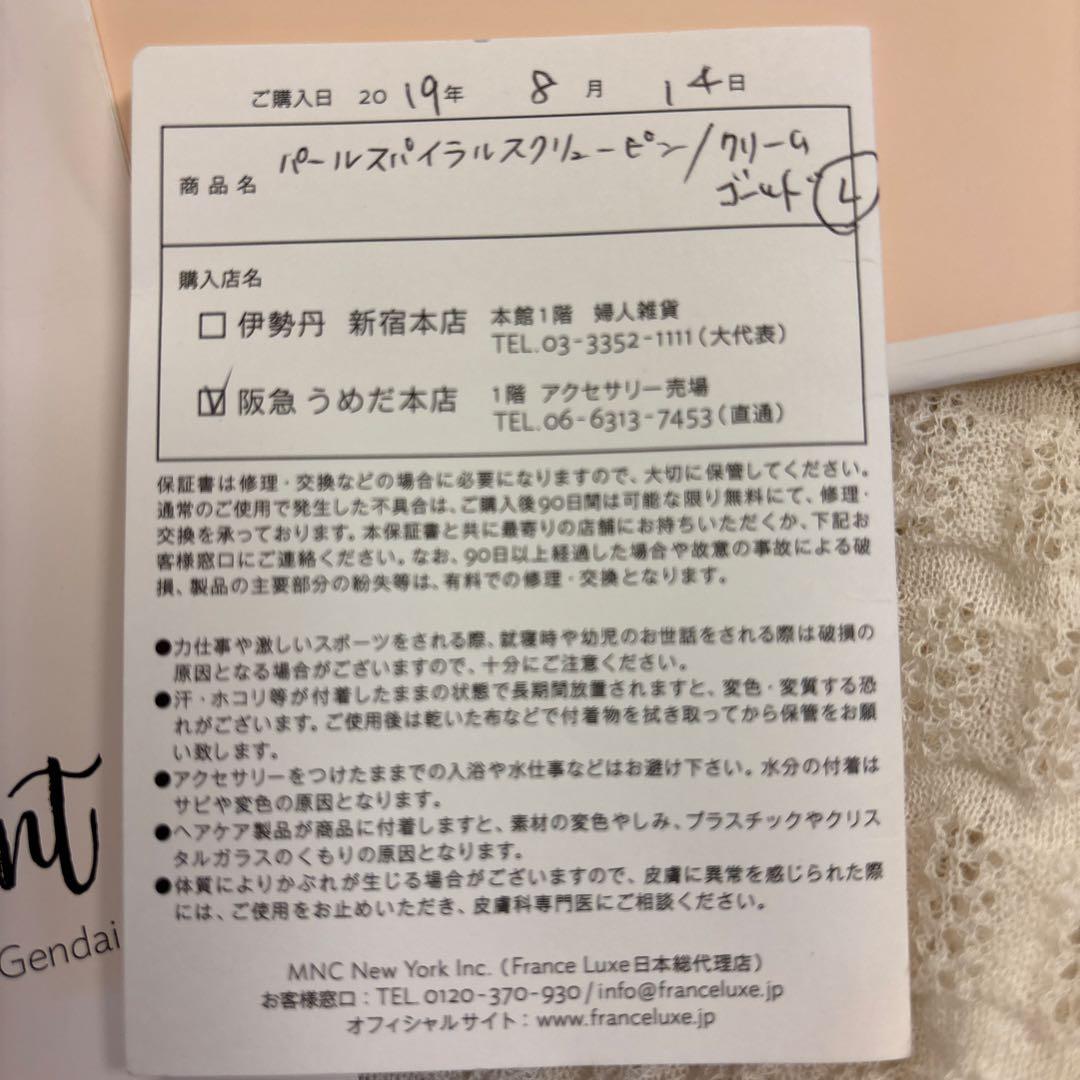 ご購入日 2019年 8月 14日
商品名 パールスパイラルスクリューピン/クリーム
ゴールド L
購入店名
伊勢丹 新宿本店 本館1階 婦人雑貨
TEL.03-3352-1111(大代表)
阪急 うめだ本店 1階 アクセサリー売場
TEL.06-6313-7453(直通)
保証書は修理・交換などの場合に必要になりますので、大切に保管してください。
通常のご使用で発生した不具合は、ご購入後90日間は可能な限り無料にて、修理・
交換を承っております。本保証書と共に最寄りの店舗にお持ちいただくか、下記お
客様窓口にご連絡ください。なお、90日以上経過した場合や故意の事故による破
損、製品の主要部分の紛失等は、有料での修理・交換となります。
●力仕事や激しいスポーツをされる際、就寝時や幼児のお世話をされる際は破損の
原因となる場合がございますので、十分にご注意ください。
●汗・ホコリ等が付着したままの状態で長期間放置されますと、変色・変質する恐
れがございます。ご使用後は乾いた布などで付着物を拭き取ってから保管をお願
い致します。
●アクセサリーをつけたままでの入浴や水仕事などはお避け下さい。水分の付着は
サビや変色の原因となります。
●ヘアケア製品が商品に付着しますと、素材の変色やしみ、プラスチックやクリス
タルガラスのくもりの原因となります。
●体質によりかぶれが生じる場合がございますので、皮膚に異常を感じられた際
には、ご使用をお止めいただき、皮膚科専門医にご相談ください。
MNC New York Inc.(France Luxe日本総代理店)
お客様窓口:TEL. 0120-370-930/info@franceluxe.jp
オフィシャルサイト:www.franceluxe.jp
nt
Gendai